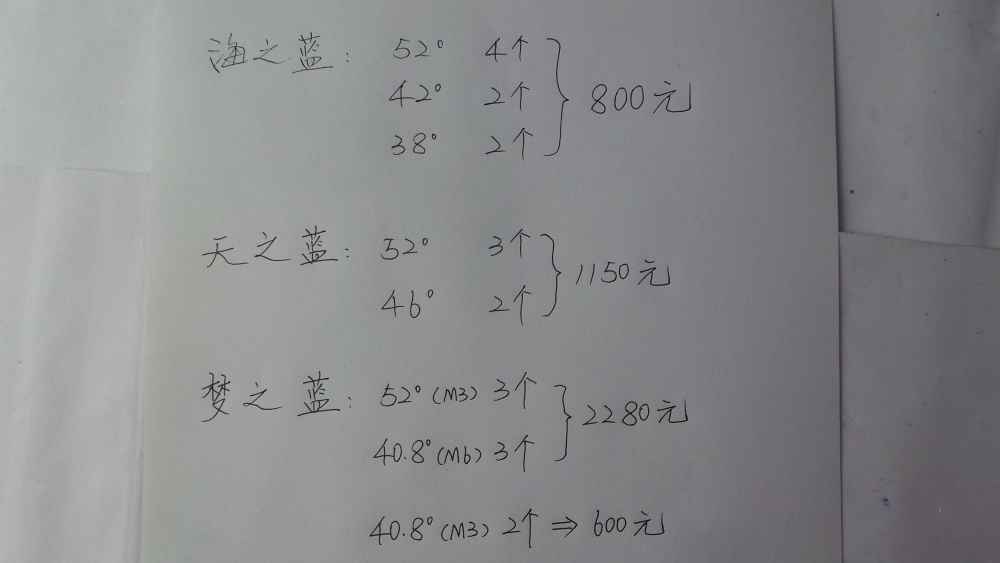 海之蓝: 52° 4个
42° 2个 } 800元
38° 2个
天之蓝: 52° 3个 } 1150元
46° 2个
梦之蓝: 52° (M3) 3个 } 2280元
40.8° (M6) 3个
40.8° (M3) 2个 ⇒ 600元